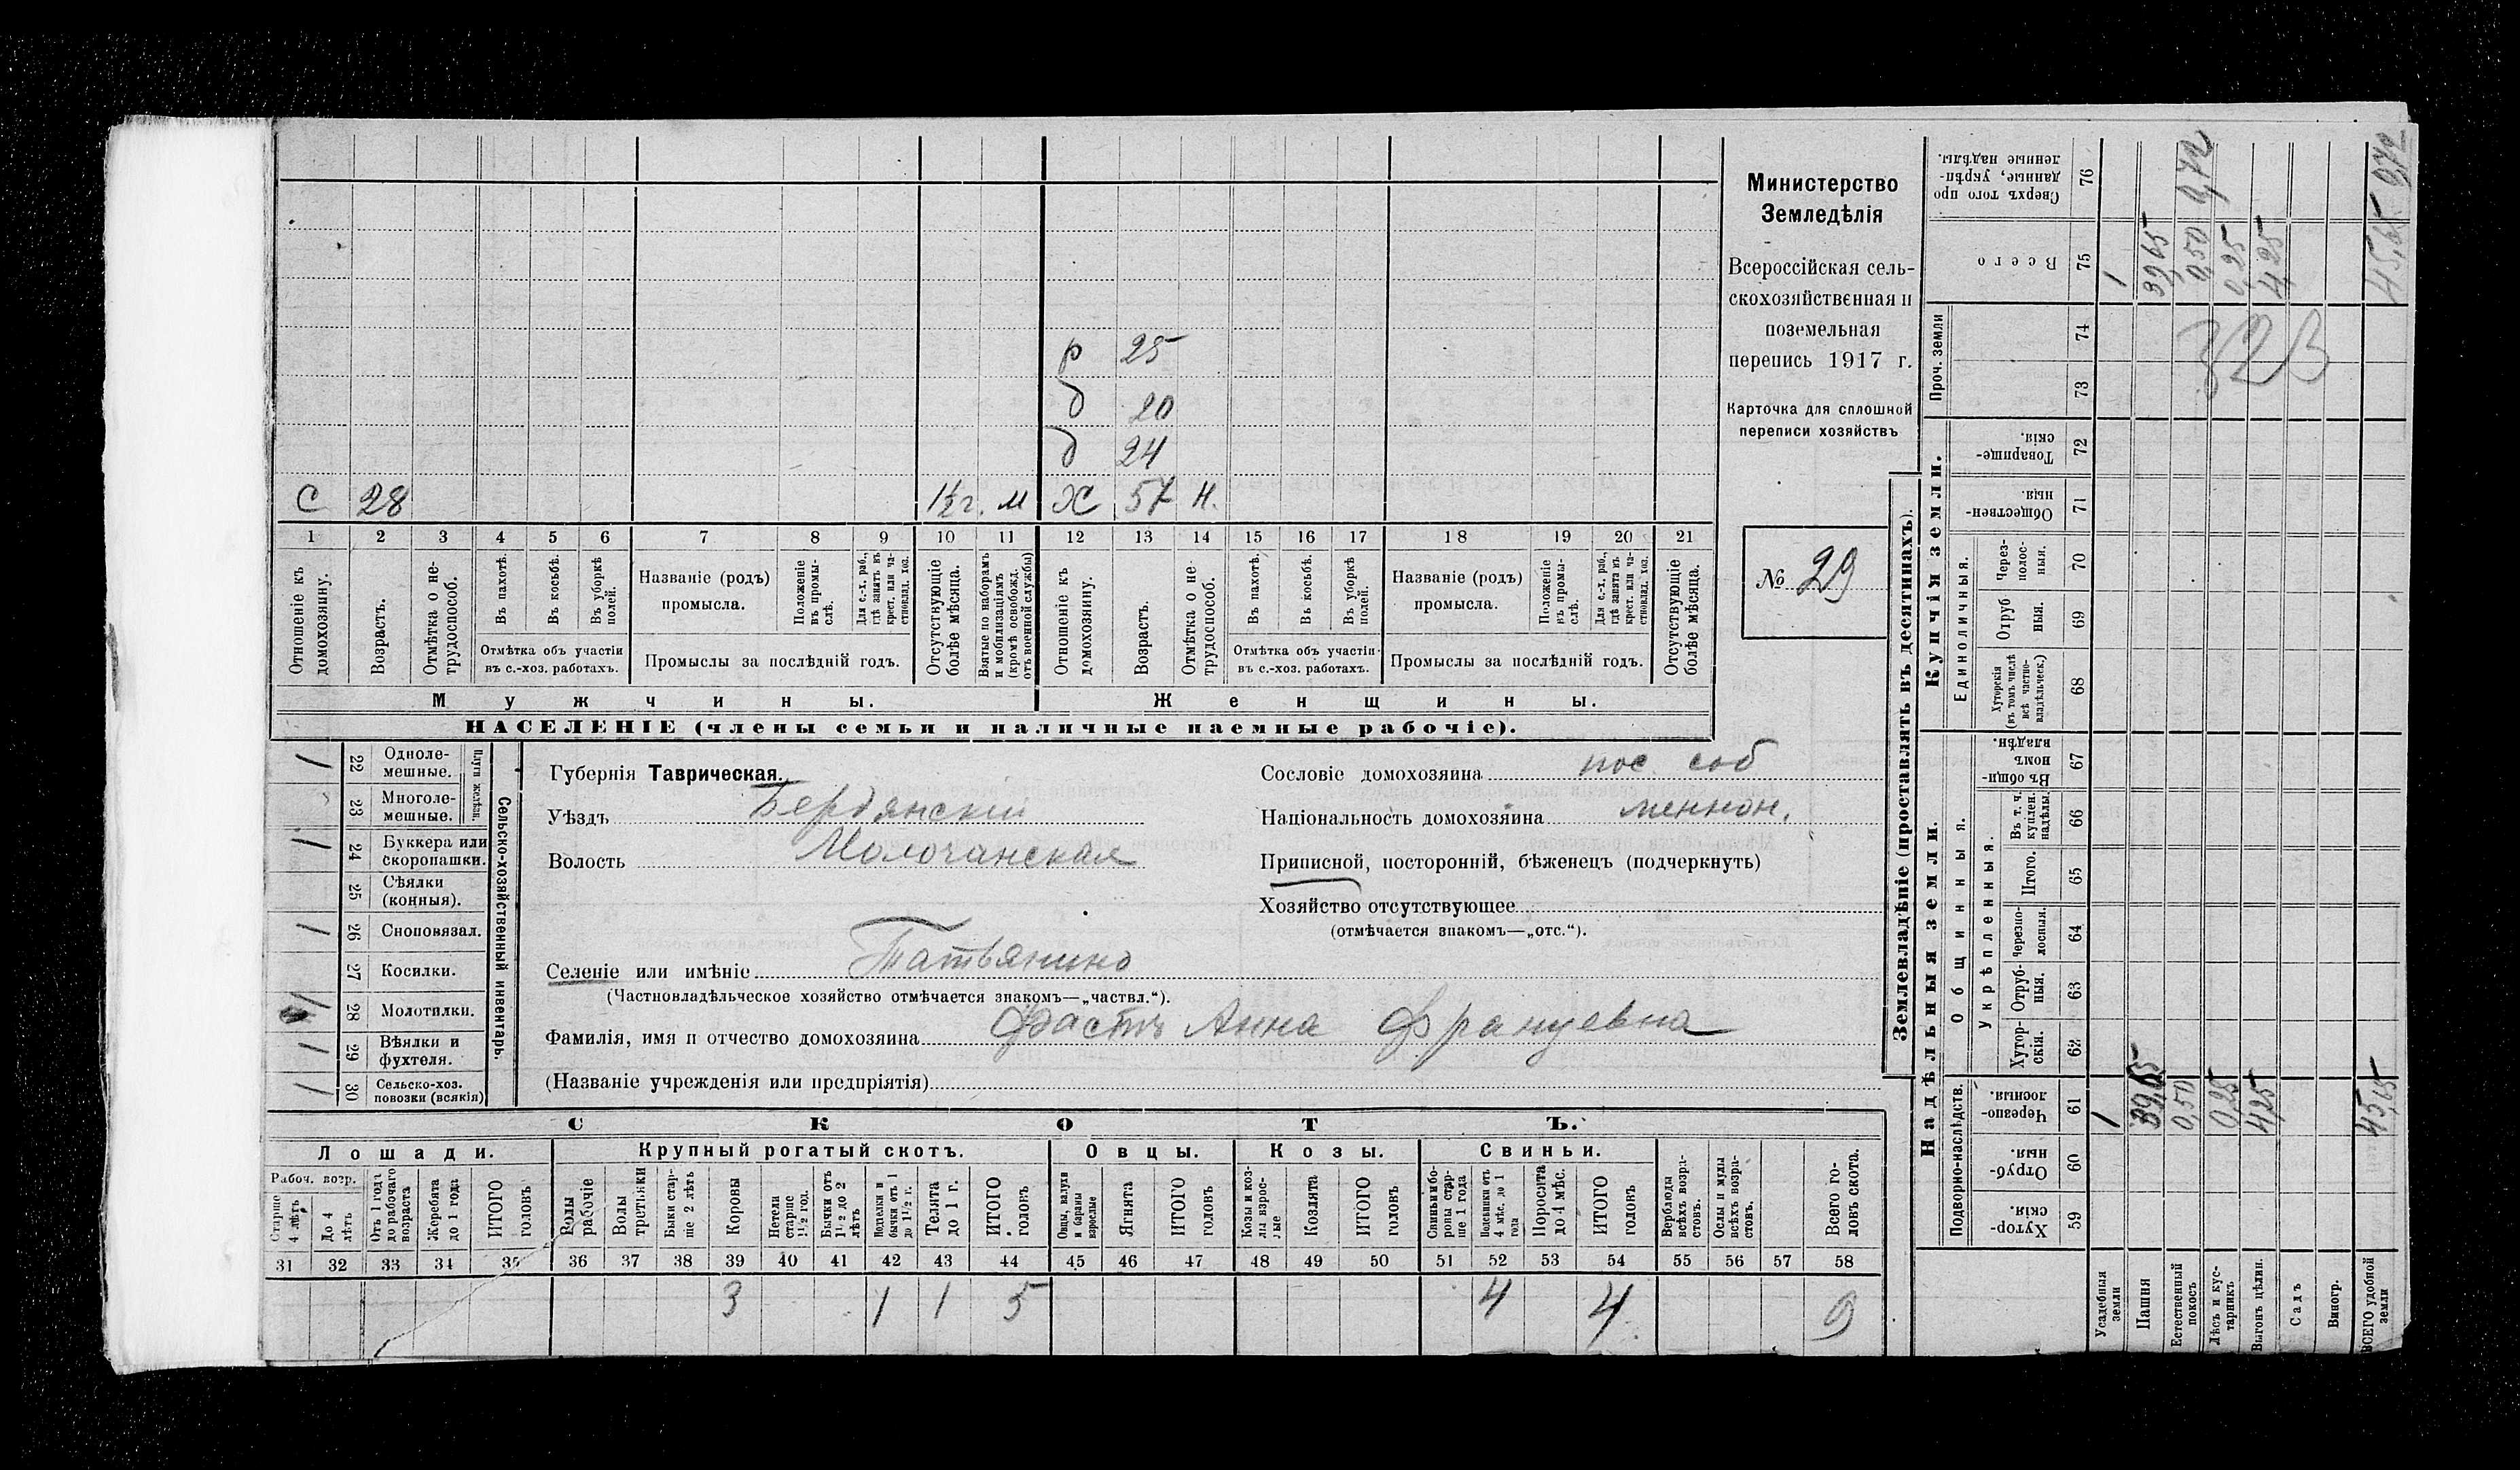 Министерство
Земледѣлія
Всероссійская сель-
скохозяйственная и
поземельная
перепись 1917 г.
Карточка для сплошной
переписи хозяйствъ
№ 29
р 25
д 20
д 24
С 28 1½ г. м Х 57 н.
1 2 3 4 5 6 7 8 9 10 11 12 13 14 15 16 17 18 19 20 21
Отношеніе къ домохозяину.
Возрастъ.
Отмѣтка о не-трудоспособ.
Въ пахотѣ.
Въ косьбѣ.
Въ уборкѣ полей.
Отмѣтка объ участіи
въ с.-хоз. работахъ.
Названіе (родъ)
промысла.
Положеніе въ промы-слѣ.
Для с.-х. раб., гдѣ занятъ въ крест. или ча-стновлад. хоз.
Промыслы за послѣдній годъ.
Отсутствующіе болѣе мѣсяца.
Взятые по наборамъ и мобилизаціямъ (кромѣ освобожд. отъ военной службы)
Отношеніе къ домохозяину.
Возрастъ.
Отмѣтка о не-трудоспособ.
Въ пахотѣ.
Въ косьбѣ.
Въ уборкѣ полей.
Отмѣтка объ участіи
въ с.-хоз. работахъ.
Названіе (родъ)
промысла.
Положеніе въ промы-слѣ.
Для с.-х. раб., гдѣ занята въ крест. или ча-стновлад. хоз.
Промыслы за послѣдній годъ.
Отсутствующіе болѣе мѣсяца.
Мужчины.
Женщины.
НАСЕЛЕНІЕ (члены семьи и наличные наемные рабочіе).
Сельско-хозяйственный инвентарь.
Плуги желѣзн.
1 22 Одноле-мешные.
23 Многоле-мешные.
1 24 Буккера или скоропашки.
25 Сѣялки (конныя).
1 26 Сноповязал.
27 Косилки.
1 28 Молотилки.
1 29 Вѣялки и фухтеля.
1 30 Сельско-хоз. повозки (всякія)
Губернія Таврическая.
Уѣздъ Бердянскій
Волость Молочанская
Селеніе или имѣніе Татьянино
(Частновладѣльческое хозяйство отмѣчается знакомъ—„частвл.“).
Фамилія, имя и отчество домохозяина Фастъ Анна Францевна
(Названіе учрежденія или предпріятія)
Сословіе домохозяина пос. соб
Національность домохозяина меннон.
Приписной, посторонній, бѣженецъ (подчеркнуть)
Хозяйство отсутствующее
(отмѣчается знакомъ—„отс.“).
СКОТЪ.
Лошади. Крупный рогатый скотъ. Овцы. Козы. Свиньи.
Рабоч. возр.
Старше 4 лѣтъ
До 4 лѣтъ
Отъ 1 года до рабочаго возраста
Жеребята до 1 года
ИТОГО головъ
Волы рабочіе
Волы третьяки
Быки стар-ше 2 лѣтъ
Коровы
Нетели старше 1½ год.
Бычки отъ 1½ до 2 лѣтъ
Подтелки и бычки отъ 1 до 1½ г.
Телята до 1 г.
ИТОГО головъ
Овцы, валухи и бараны взрослые
Ягнята
ИТОГО головъ
Козы и коз-лы взрос-лые
Козлята
ИТОГО головъ
Свиньи и бо-ровы стар-ше 1 года
Подсвинки отъ 4 мѣс. до 1 года
Поросята до 4 мѣс.
ИТОГО головъ
Верблюды всѣхъ возра-стовъ.
Ослы и мулы всѣхъ возра-стовъ.
Всего го-ловъ скота.
31 32 33 34 35 36 37 38 39 40 41 42 43 44 45 46 47 48 49 50 51 52 53 54 55 56 57 58
3 1 1 5 4 4 9
Землевладѣніе (проставлять въ десятинахъ).
Надѣльныя земли.
Купчія земли.
Проч. земли
Подворно-наслѣдств.
Общинныя.
Укрѣпленныя.
Единоличныя.
Хутор-скія. 59
Отруб-ныя. 60
Черезпо-лосныя. 61
Хутор-скія. 62
Отруб-ныя. 63
Черезпо-лосныя. 64
Итого. 65
Въ т. ч. куплен. надѣлы. 66
Въ общин-номъ владѣн. 67
Хуторскія (въ томъ числѣ всѣ частно-владѣльческ.) 68
Отруб-ныя. 69
Через-полос-ныя. 70
Обществен-ныя. 71
Товарище-скія. 72
73
74
Всего 75
Сверхъ того про-данные, укрѣп-ленные надѣлы. 76
Усадебныя земли 1 1
Пашня 39,65 39,65
Естественный покосъ 0,50 0,50 0,72
Лѣсъ и кус-тарникъ 0,25 0,25
Выгонъ цѣлин. 4,25 4,25
Садъ
Виногр.
ВСЕГО удобной земли 45,65 45,65 0,72
323